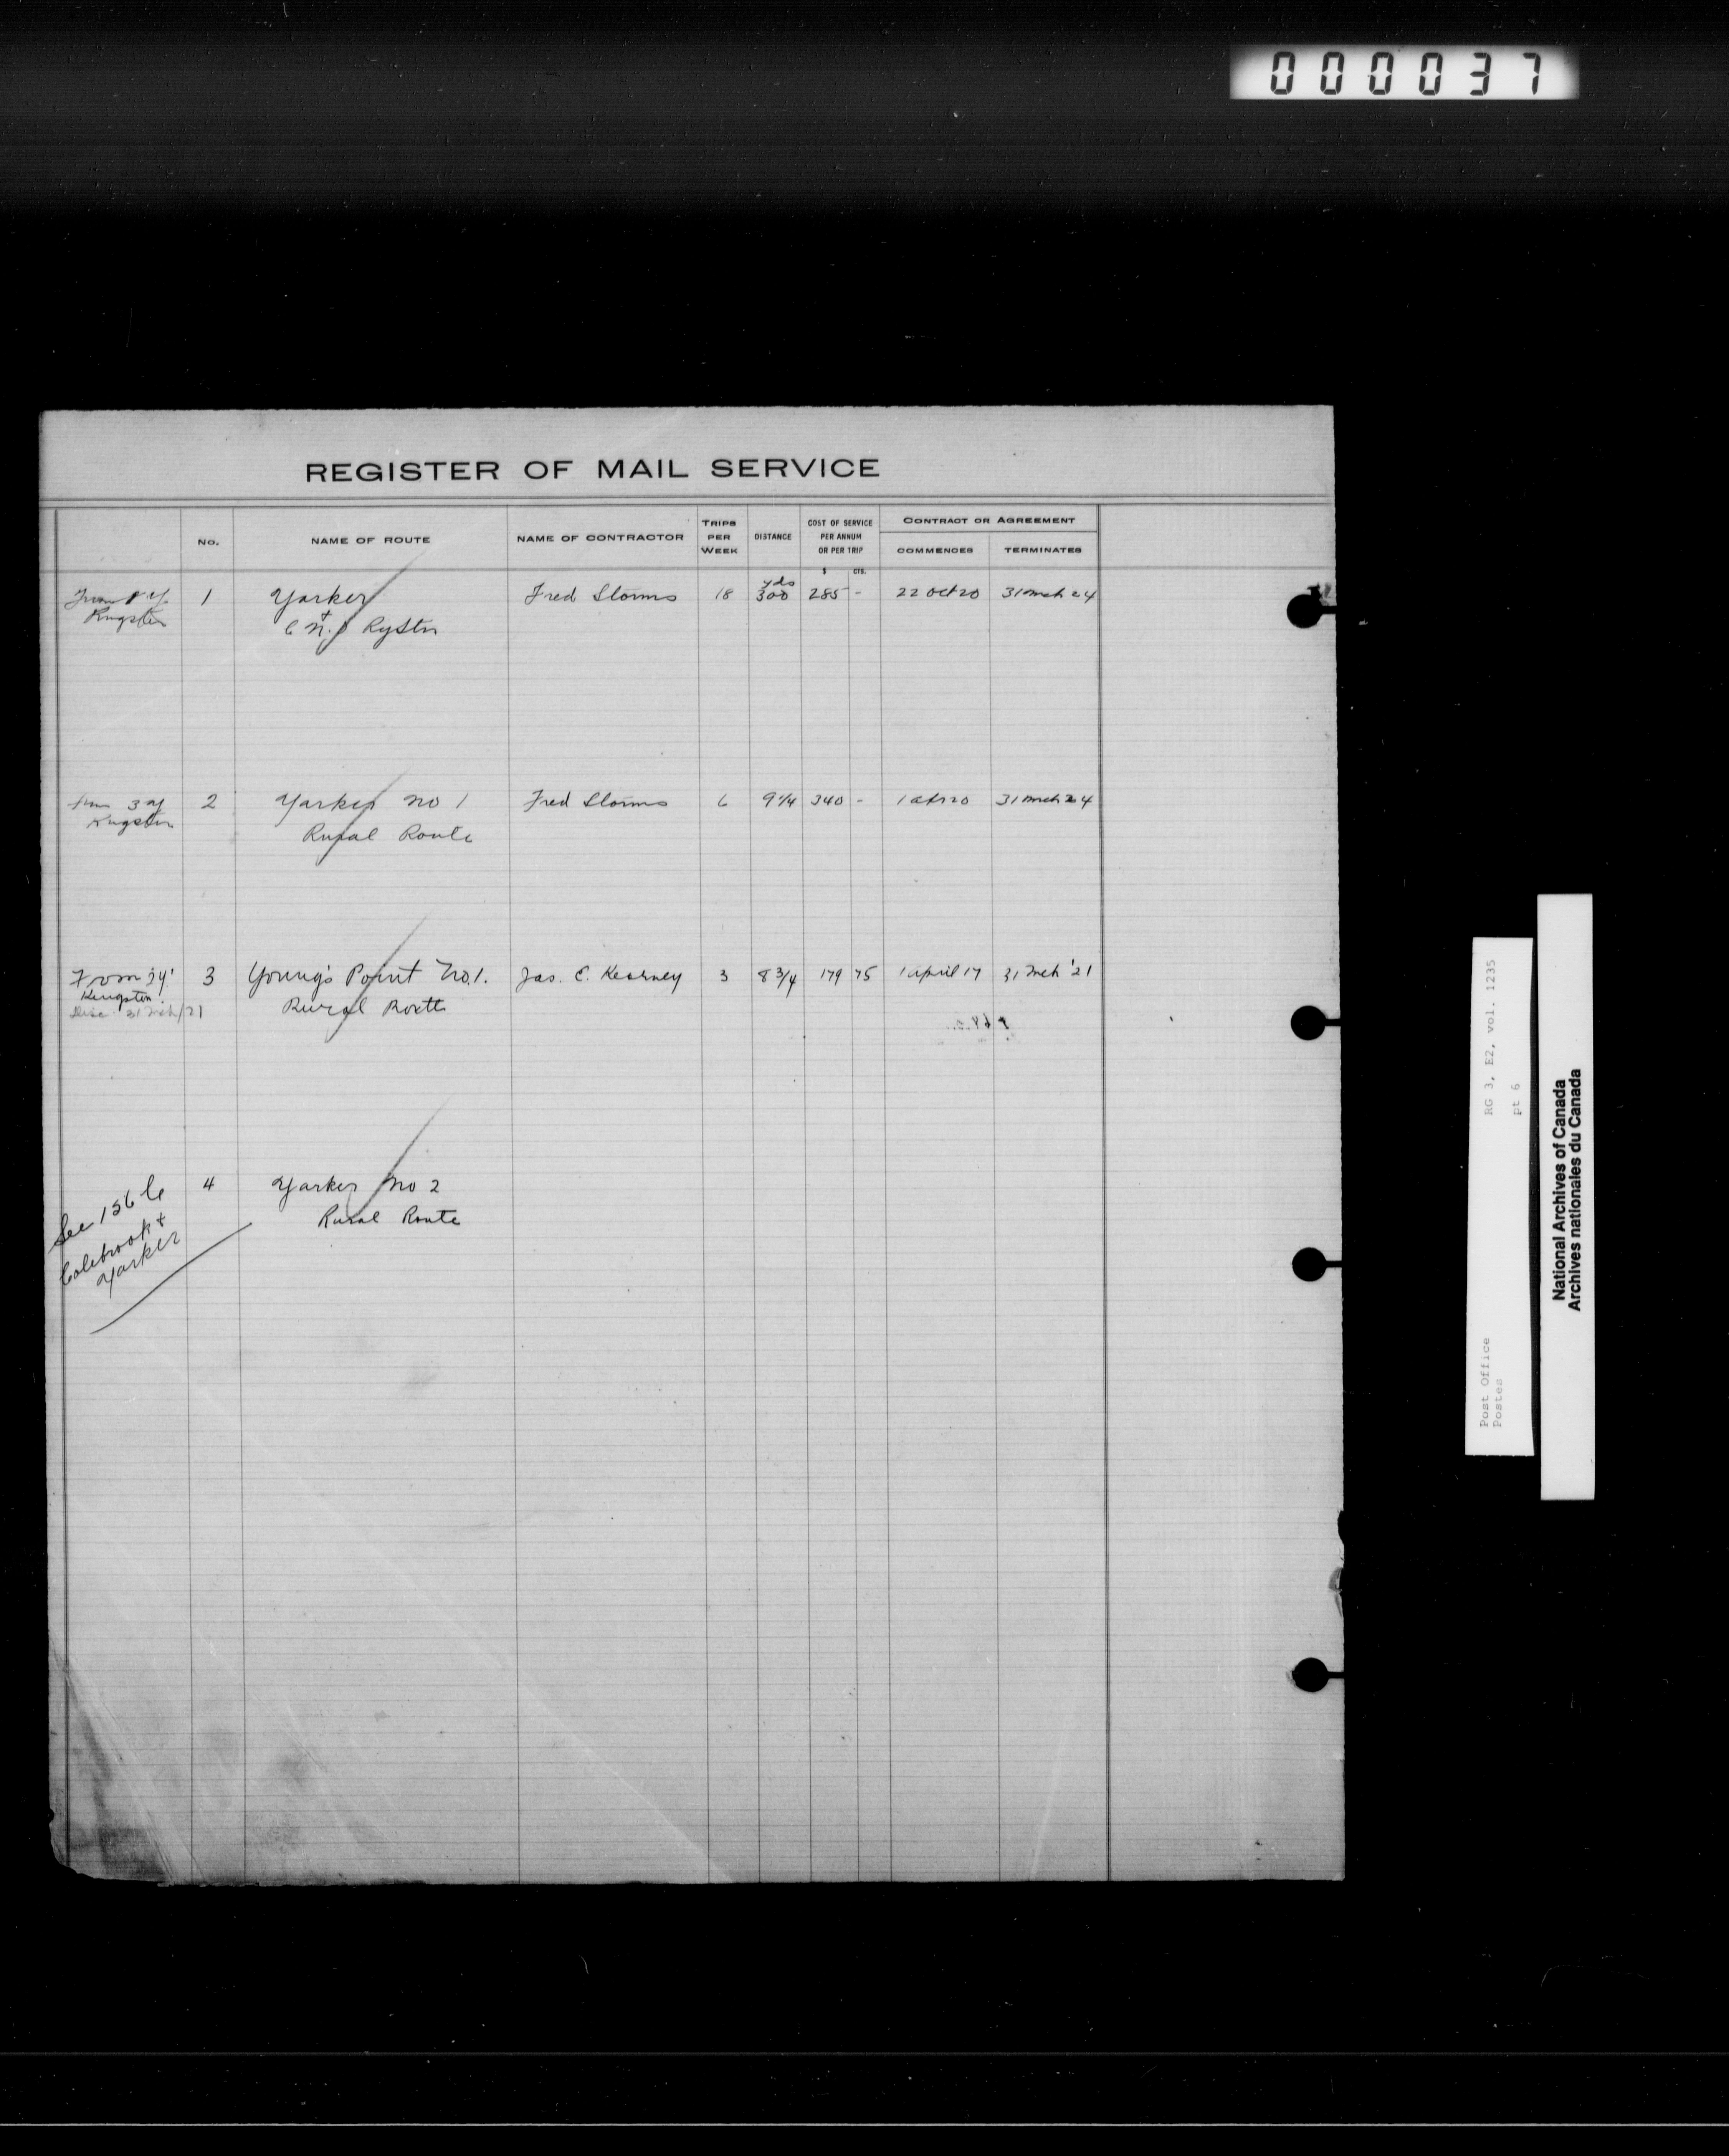 000037
REGISTER OF MAIL SERVICE
No. NAME OF ROUTE NAME OF CONTRACTOR TRIPS PER WEEK DISTANCE COST OF SERVICE PER ANNUM OR PER TRIP CONTRACT OR AGREEMENT
COMMENCES TERMINATES
$ CTS.
yds
From 8 Y 1 Yarker Fred Storms 18 300 285 - 22 Oct 20 31 Mch 24
Kingston & C N. Ry Stn
from 3 Y 2 Yarker No 1 Fred Storms 6 9 1/4 340 - 1 apr 20 31 Mch 24
Kingston Rural Route
From Y 3 Young's Point No. 1. Jas. E. Kearney 3 8 3/4 179 75 1 April 17 31 Mch '21
Kingston Rural Route
Disc. 31 Mch/21
See 156 C 4 Yarker No 2
Colebrook & Rural Route
Yarker
RG 3, E2, vol. 1235
pt 6
Post Office
Postes
National Archives of Canada
Archives nationales du Canada